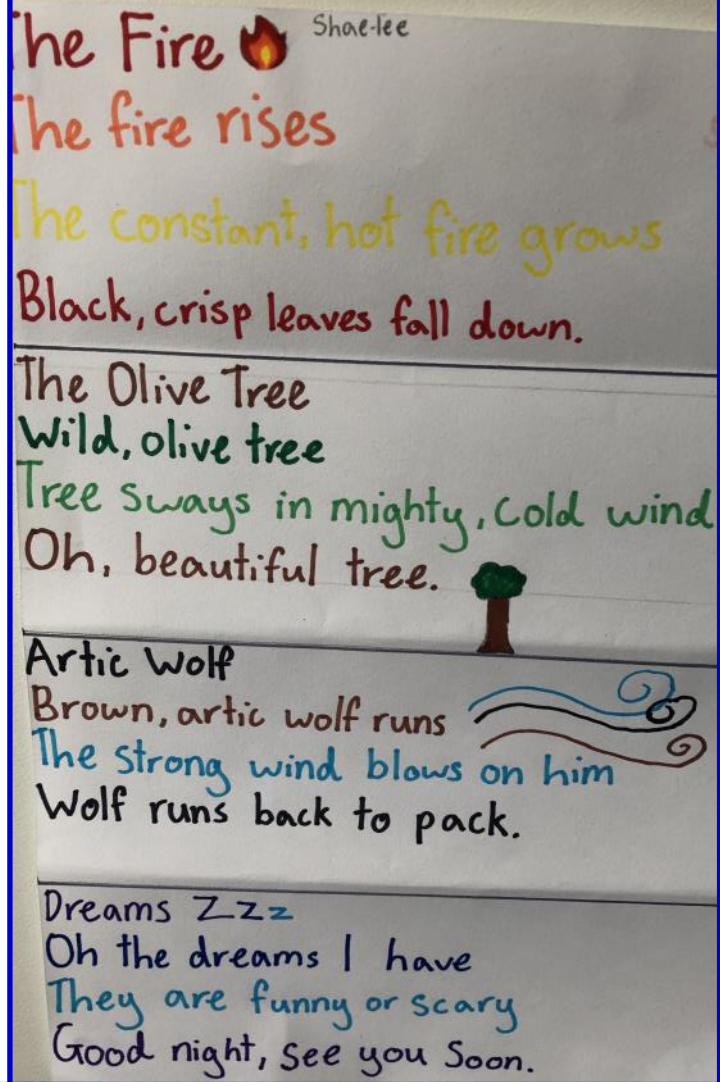 The Fire
Shae-lee
The fire rises
The constant, hot fire grows
Black, crisp leaves fall down.
The Olive Tree
Wild, olive tree
Tree sways in mighty, cold wind
Oh, beautiful tree.
Artic Wolf
Brown, artic wolf runs
The strong wind blows on him
Wolf runs back to pack.
Dreams Zzz
Oh the dreams I have
They are funny or scary
Good night, see you soon.